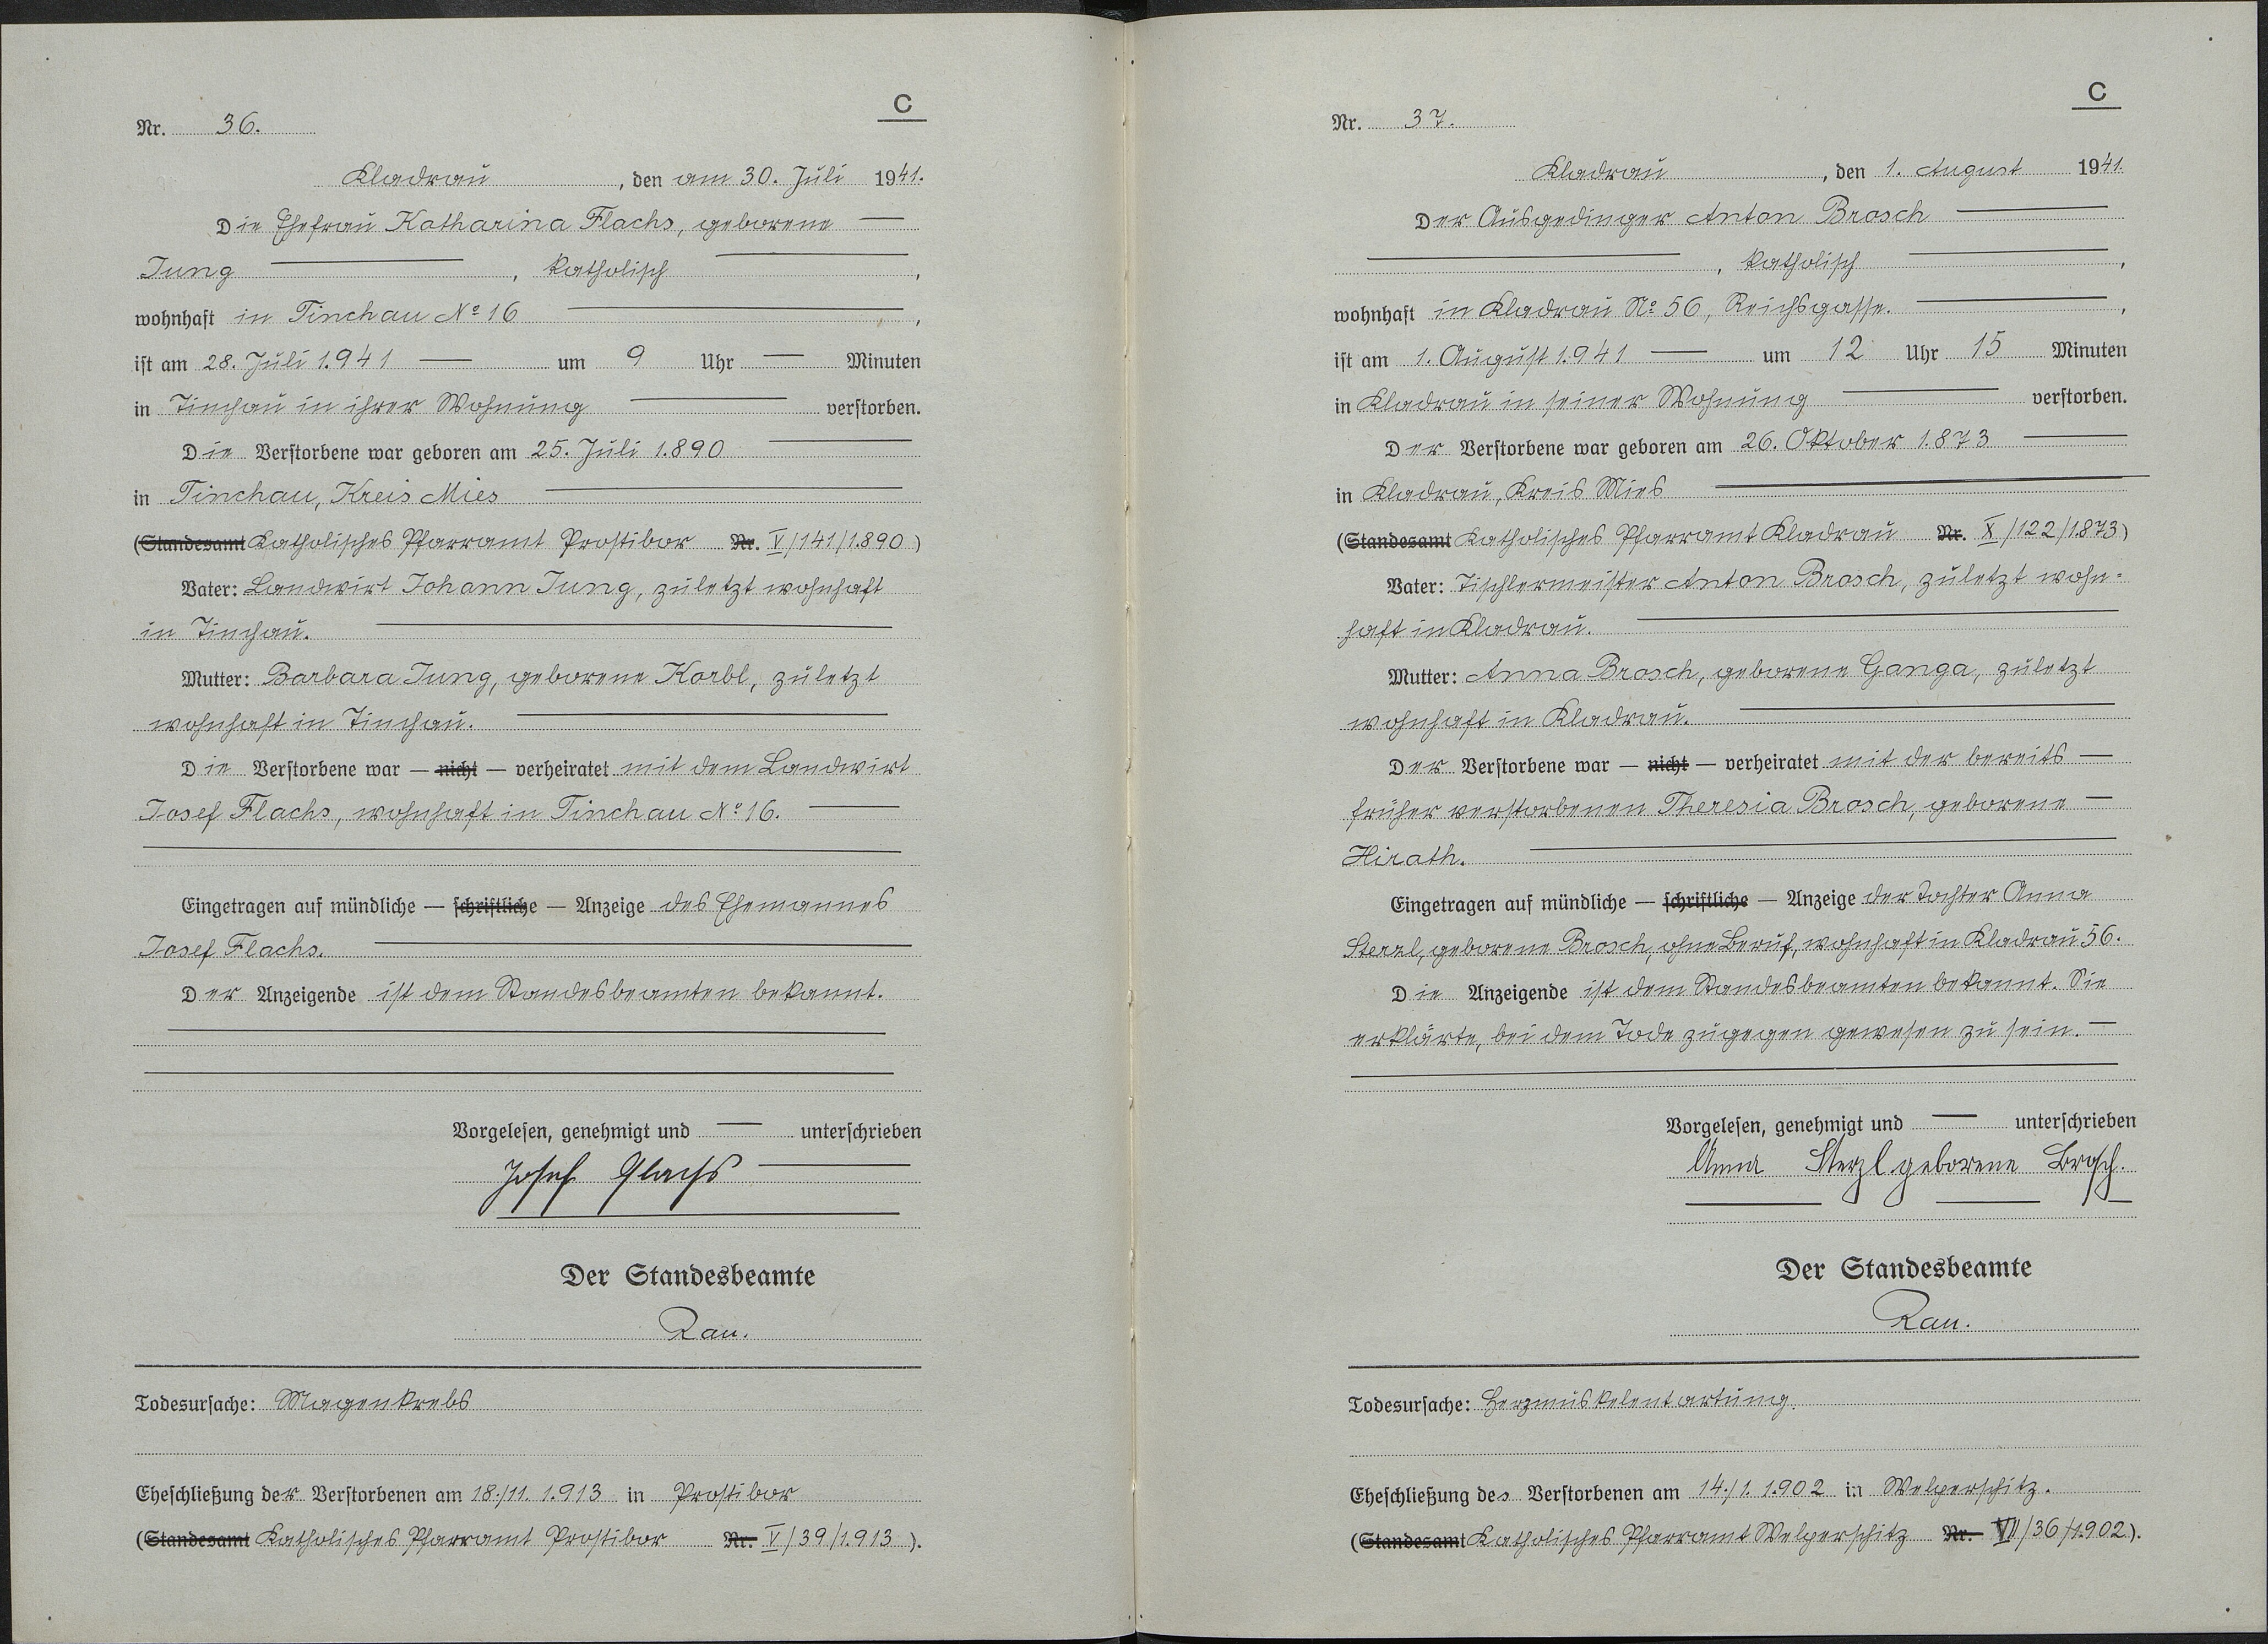 C
Nr. 36.
Kladrau, den am 30. Juli 1941.
Die Ehefrau Katharina Flachs, geborene —
Jung —, katholisch —,
wohnhaft in Tinchau No 16 —,
ist am 28. Juli 1941 — um 9 Uhr — Minuten
in Tinchau in ihrer Wohnung — verstorben.
Die Verstorbene war geboren am 25. Juli 1890 —
in Tinchau, Kreis Mies —
(Standesamt Katholisches Pfarramt Prostibor Nr. V/141/1890)
Vater: Landwirt Johann Jung, zuletzt wohnhaft
in Tinchau. —
Mutter: Barbara Jung, geborene Korbl, zuletzt
wohnhaft in Tinchau. —
Die Verstorbene war — nicht — verheiratet mit dem Landwirt
Josef Flachs, wohnhaft in Tinchau No 16. —
Eingetragen auf mündliche — schriftliche — Anzeige des Ehemannes
Josef Flachs. —
Der Anzeigende ist dem Standesbeamten bekannt.
Vorgelesen, genehmigt und — unterschrieben
Josef Flachs —
Der Standesbeamte
Rau.
Todesursache: Magenkrebs
Eheschließung der Verstorbenen am 18./11. 1913 in Prostibor
(Standesamt Katholisches Pfarramt Prostibor Nr. V/39/1913).
C
Nr. 37.
Kladrau, den 1. August 1941.
Der Ausgedinger Anton Brosch —
—, katholisch —,
wohnhaft in Kladrau No 56, Reichsgasse. —,
ist am 1. August 1941 — um 12 Uhr 15 Minuten
in Kladrau in seiner Wohnung — verstorben.
Der Verstorbene war geboren am 26. Oktober 1873 —
in Kladrau, Kreis Mies —
(Standesamt Katholisches Pfarramt Kladrau Nr. X/122/1873)
Vater: Tischlermeister Anton Brosch, zuletzt wohn-
haft in Kladrau. —
Mutter: Anna Brosch, geborene Ganga, zuletzt
wohnhaft in Kladrau. —
Der Verstorbene war — nicht — verheiratet mit der bereits —
früher verstorbenen Theresia Brosch, geborene —
Hirath. —
Eingetragen auf mündliche — schriftliche — Anzeige der Tochter Anna
Sterzl, geborene Brosch, ohne Beruf, wohnhaft in Kladrau 56.
Die Anzeigende ist dem Standesbeamten bekannt. Sie
erklärte, bei dem Tode zugegen gewesen zu sein. —
Vorgelesen, genehmigt und — unterschrieben
Anna Sterzl geborene Brosch.
Der Standesbeamte
Rau.
Todesursache: Herzmuskelentartung.
Eheschließung des Verstorbenen am 14./1. 1902 in Welperschitz.
(Standesamt Katholisches Pfarramt Welperschitz Nr. VII/36/1902).